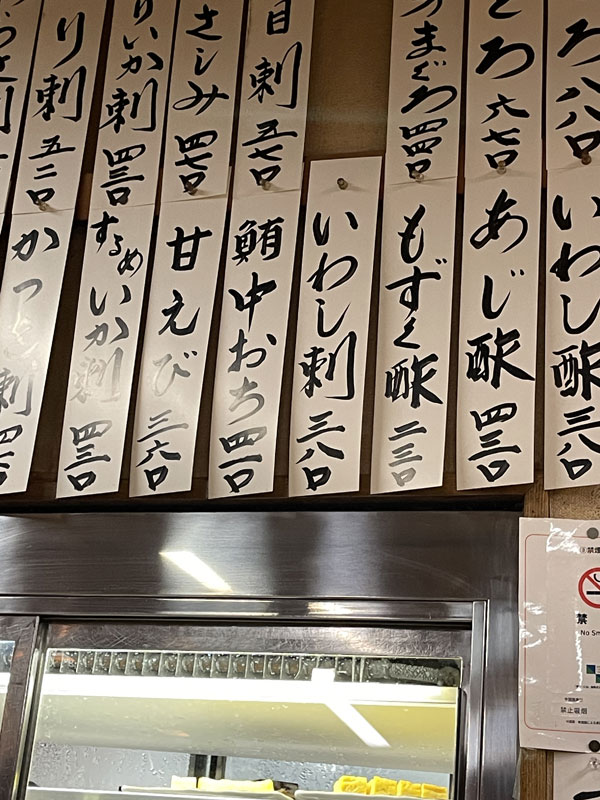 いわし酢 三八〇
あじ酢 四三〇
もずく酢 二三〇
いわし刺 三八〇
鮪中おち 四一〇
甘えび 三六〇
するめいか刺 四三〇
ろ 八八〇
ろ 六七〇
まぐろ 四四〇
目刺 五七〇
さしみ 四七〇
りいか刺 四三〇
り刺 五二〇
禁煙
禁
No Sm
禁止吸烟